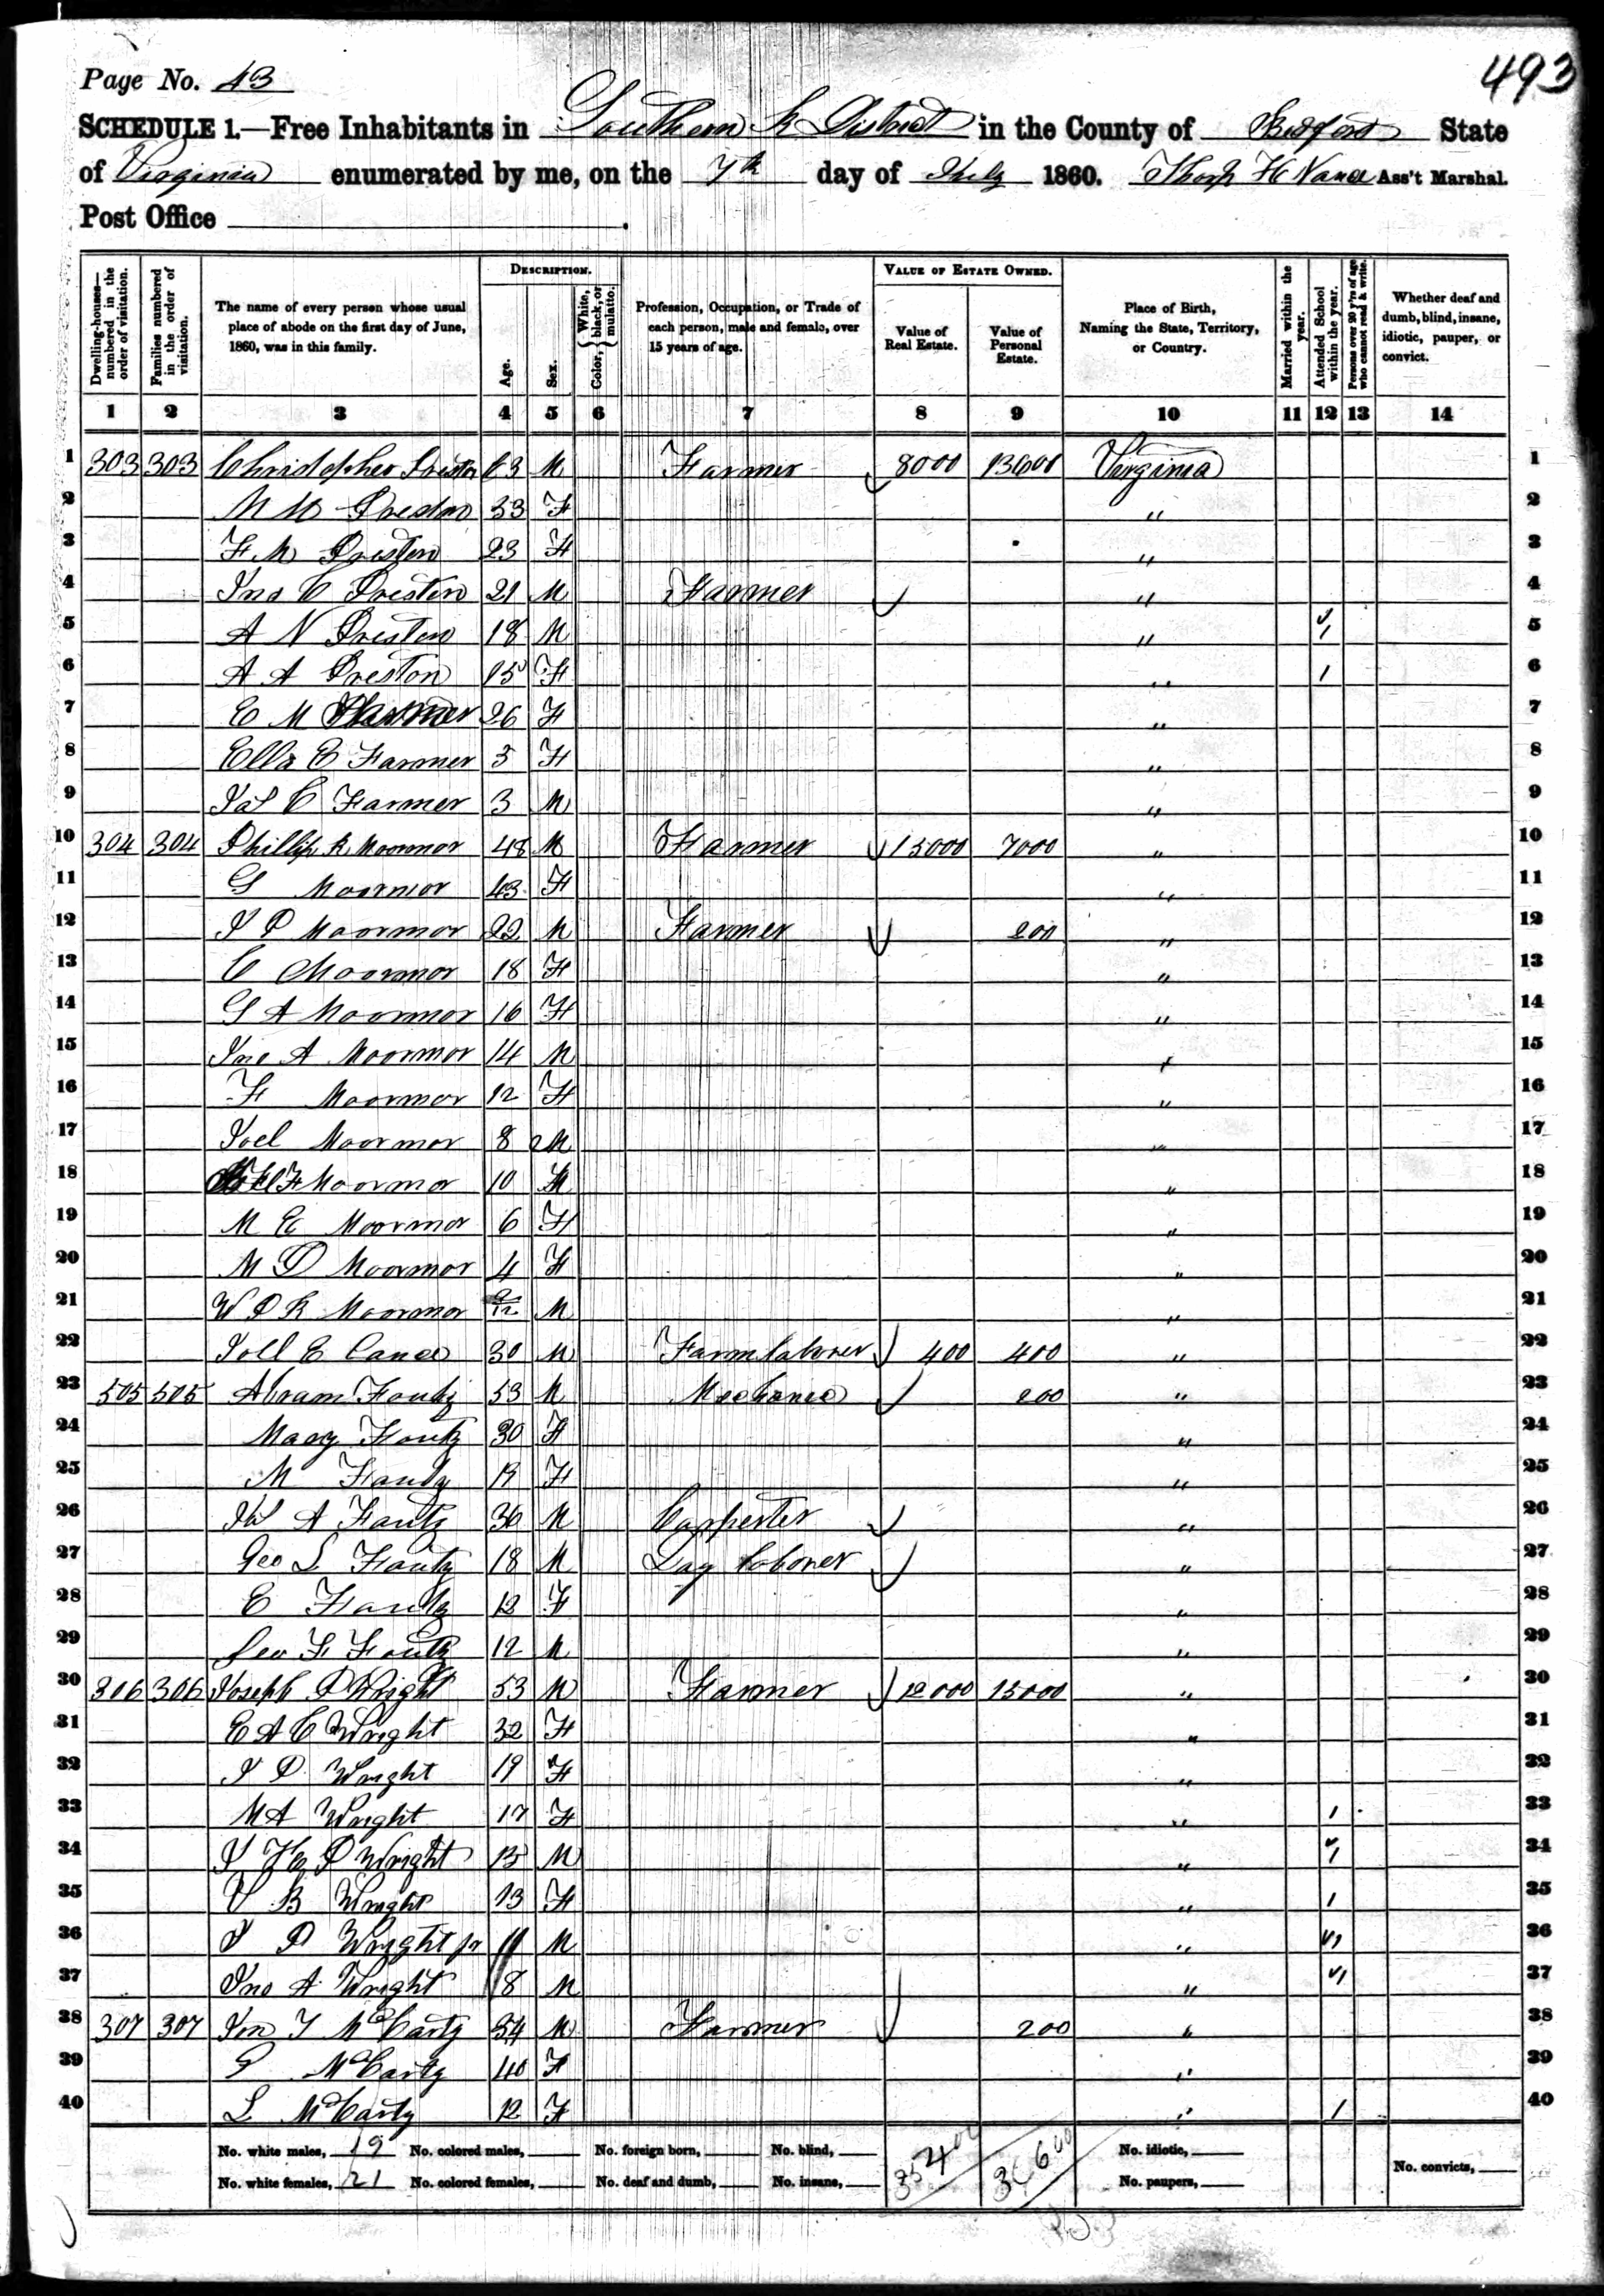 Page No. 43
493
SCHEDULE 1.—Free Inhabitants in Southern R District in the County of Bedford State
of Virginia enumerated by me, on the 7th day of July 1860. Thorp H Nance Ass't Marshal.
Post Office
Dwelling-houses—numbered in the order of visitation.
Families numbered in the order of visitation.
The name of every person whose usual place of abode on the first day of June, 1860, was in this family.
DESCRIPTION.
Age.
Sex.
Color, White, black, or mulatto.
Profession, Occupation, or Trade of each person, male and female, over 15 years of age.
VALUE OF ESTATE OWNED.
Value of Real Estate.
Value of Personal Estate.
Place of Birth, Naming the State, Territory, or Country.
Married within the year.
Attended School within the year.
Persons over 20 y'rs of age who cannot read & write.
Whether deaf and dumb, blind, insane, idiotic, pauper, or convict.
1 2 3 4 5 6 7 8 9 10 11 12 13 14
1 303 303 Christopher Preston 63 M Farmer 8000 13600 Virginia 1
2 M M Preston 33 F " 2
3 F M Preston 23 F " 3
4 Jno C Preston 21 M Farmer " 4
5 A N Preston 18 M " / 5
6 A A Preston 15 F " / 6
7 E M 26 F " 7
8 Ella E Farmer 5 F " 8
9 Jas C Farmer 3 M " 9
10 304 304 Phillip R Moormor 48 M Farmer 15000 7000 " 10
11 G Moormor 43 F " 11
12 J P Moormor 22 M Farmer 200 " 12
13 C Moormor 18 F " 13
14 G A Moormor 16 F " 14
15 Jno A Moormor 14 M " 15
16 F Moormor 12 F " 16
17 Joel Moormor 8 M " 17
18 Moormor 10 " 18
19 M E Moormor 6 F " 19
20 M P Moormor 4 F " 20
21 W P R Moormor M " 21
22 Joll E 30 M Farm laborer 400 400 " 22
23 505 505 Abram Foutz 53 M Mechanic 200 " 23
24 Mary Foutz 30 F " 24
25 M Foutz F " 25
26 A Foutz 30 M Carpenter " 26
27 Geo L Foutz 18 M Day laborer " 27
28 E Foutz 12 F " 28
29 Geo F Foutz 12 M " 29
30 306 306 Joseph P Wright 53 M Farmer 12000 15000 " 30
31 E A C Wright 32 F " 31
32 J P Wright 19 F " 32
33 M A Wright 17 F " / 33
34 J P Wright 15 M " / 34
35 V B Wright 13 F " / 35
36 J P Wright jr 11 M " / 36
37 Jno A Wright 8 M " / 37
38 307 307 Jno T McCarty 54 M Farmer 200 " 38
39 P McCarty 40 F " 39
40 L McCarty 12 F " / 40
No. white males, 19 No. colored males, No. foreign born, No. blind, 35400 36600 No. idiotic,
No. white females, 21 No. colored females, No. deaf and dumb, No. insane, No. paupers, No. convicts,